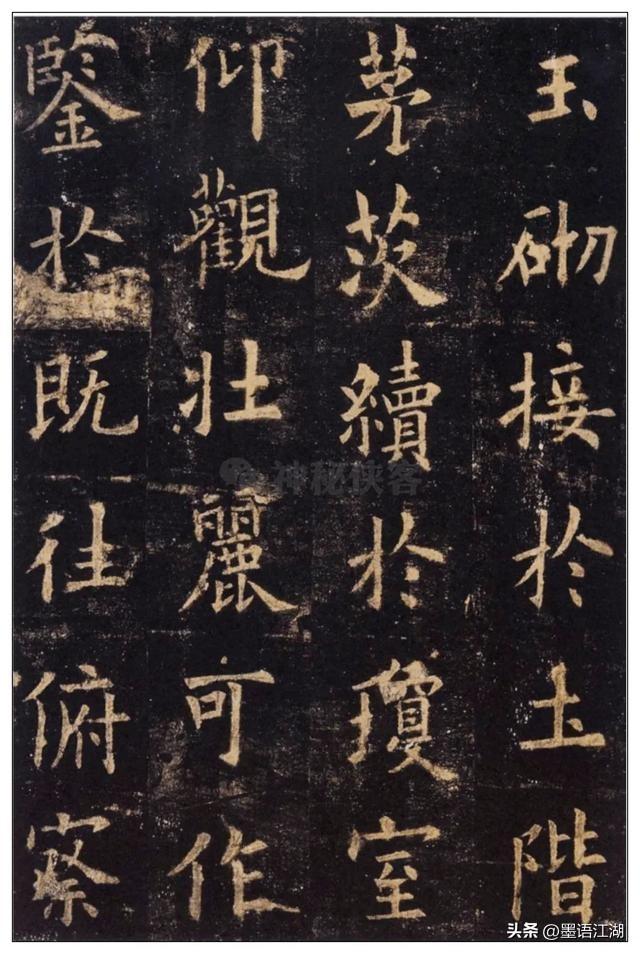 玉砌接於土階
茅茨續於瓊室
仰觀壯麗可作
鑒於既往俯察
神秘侠客
头条 @墨语江湖